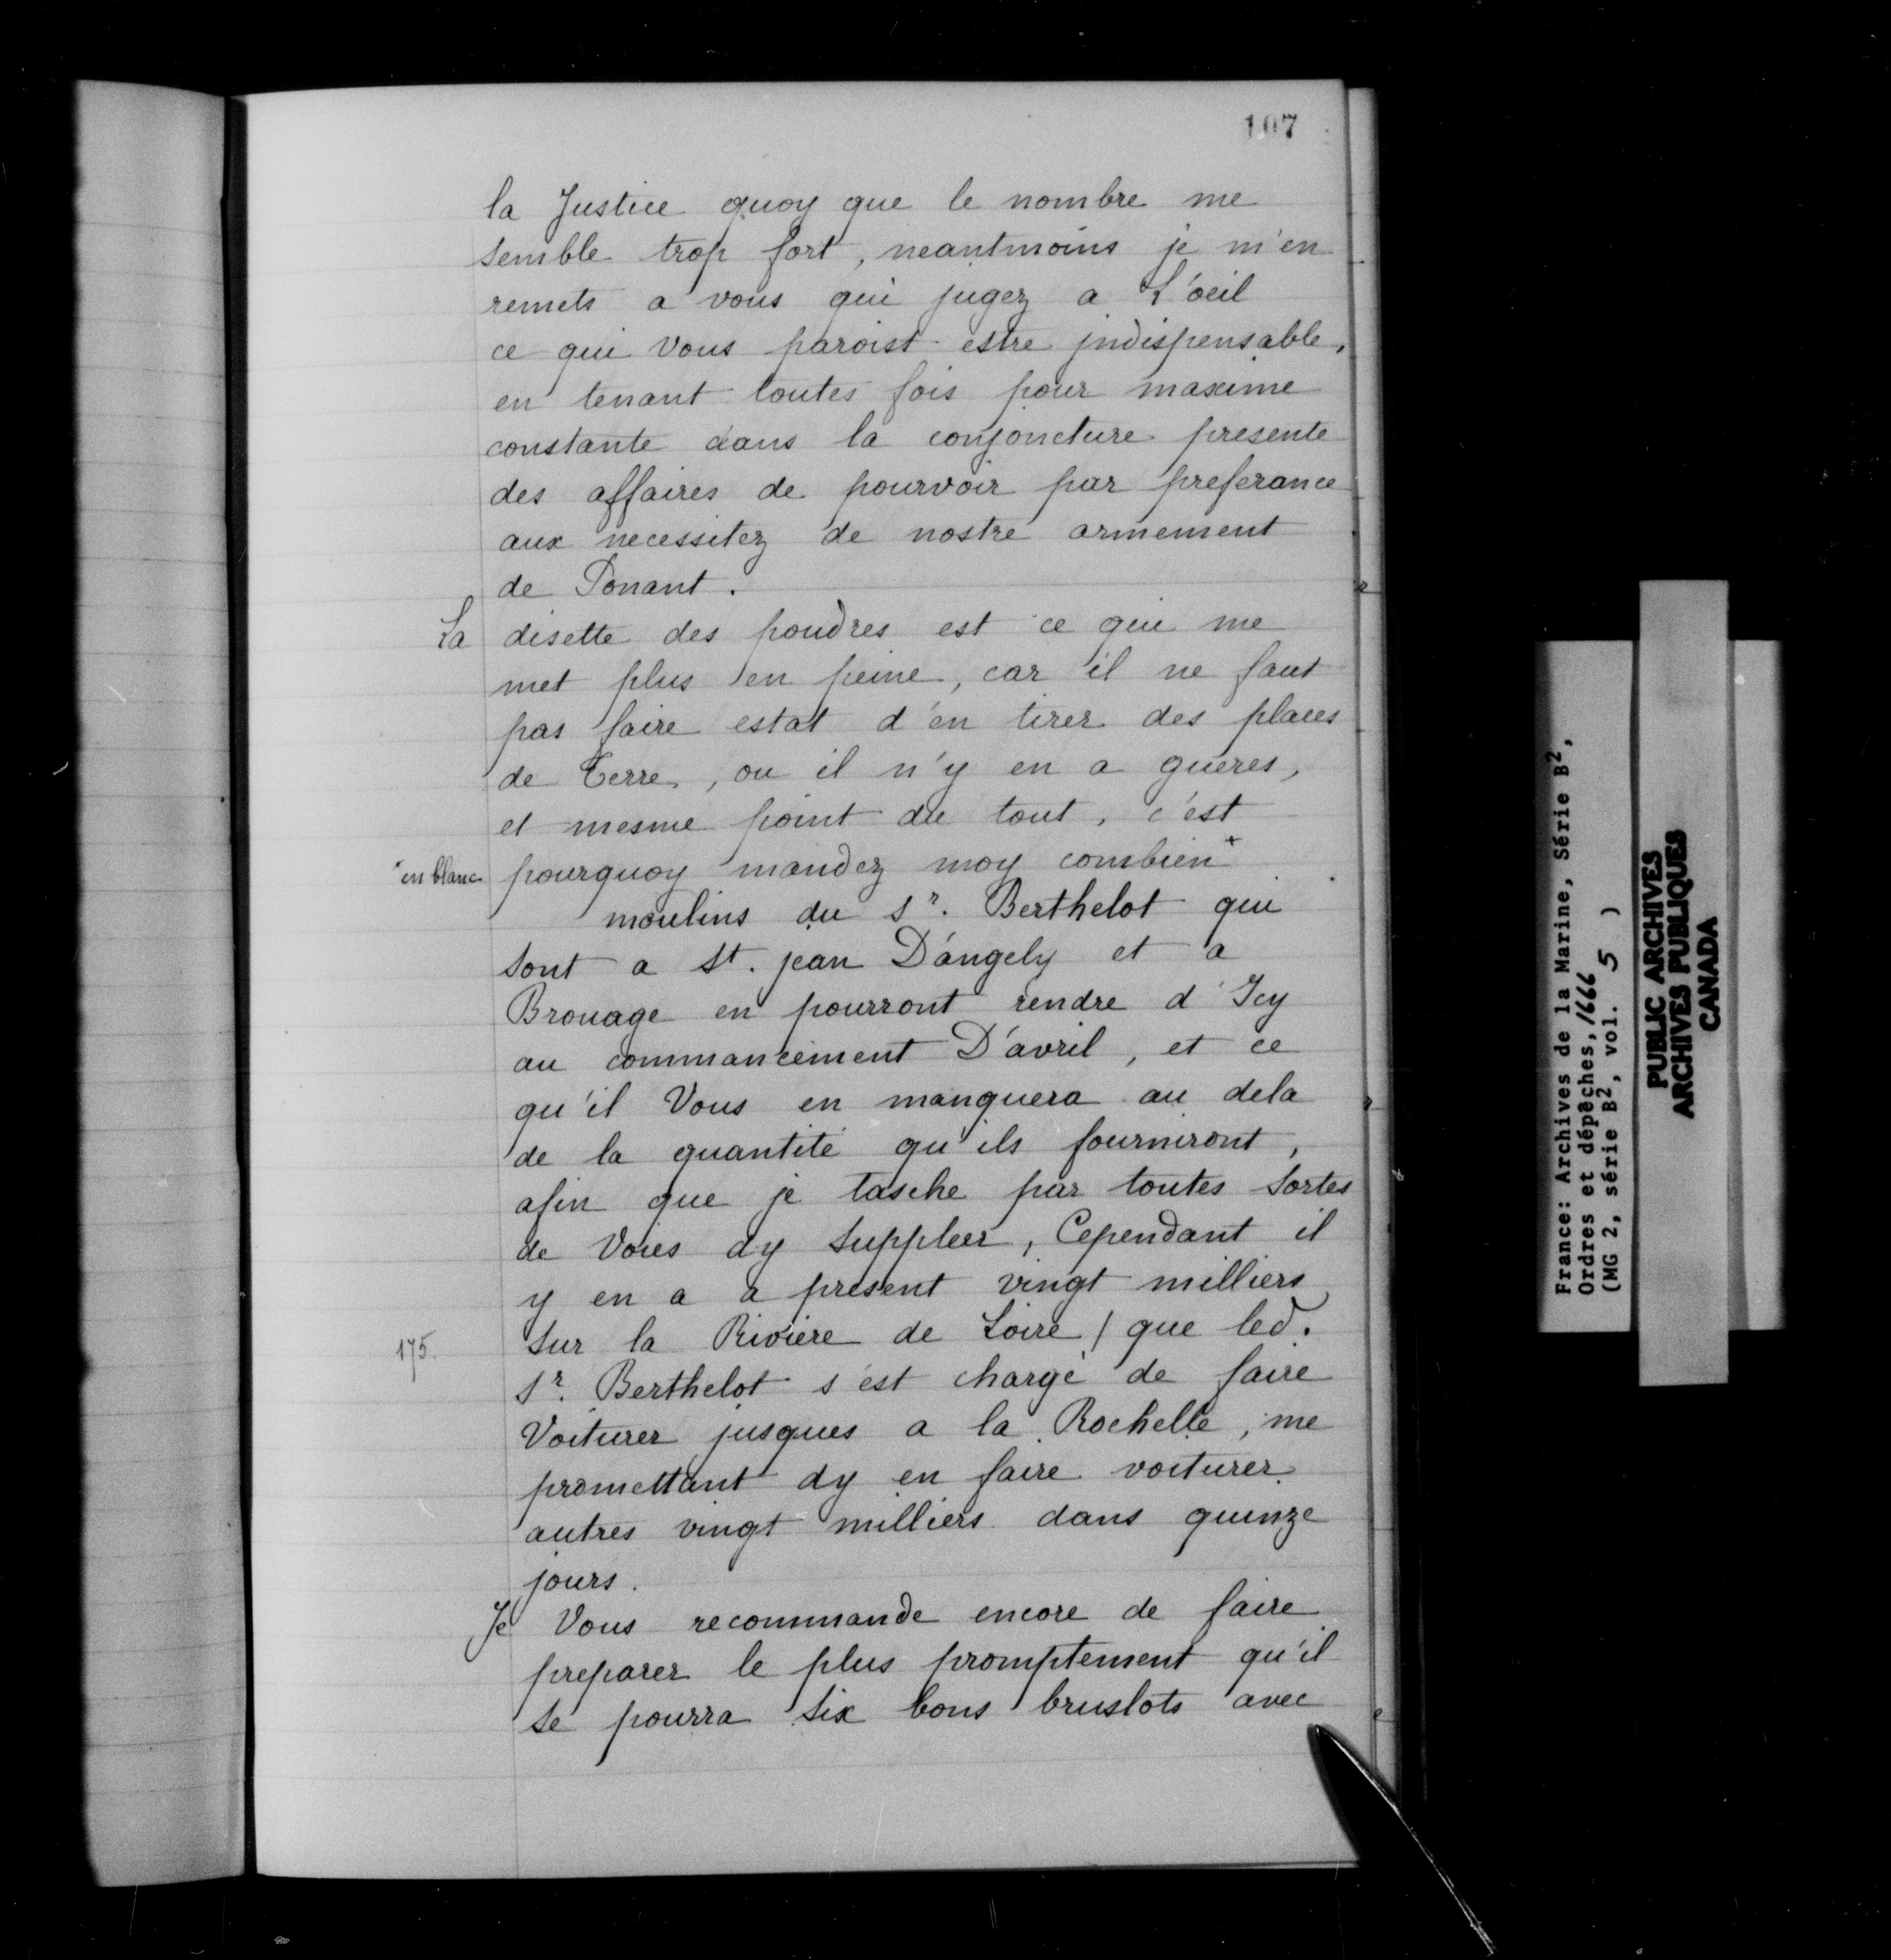 107
la Justice quoy que le nombre me
semble trop fort, neantmoins je m'en
remets a vous qui jugez a L'oeil
ce qui vous paroist estre jndispensable,
en tenant toutes fois pour maxime
constante dans la conjoncture presente
des affaires de pourvoir par preferance
aux necessitez de nostre armement
de Ponant.
La disette des poudres est ce qui me
met plus en peine, car il ne faut
pas faire estat d'en tirer des places
de Terre, ou il n'y en a gueres,
et mesme point du tout, c'est
*en blanc pourquoy mandez moy combien*
moulins du Sr. Berthelot qui
sont a St. jean D'angely et a
Brouage en pourront rendre d'Icy
au commancement D'avril, et ce
qu'il Vous en manquera au dela
de la quantité qu'ils fourniront,
afin que je tasche par toutes sortes
de Voies dy suppleer, Cependant il
y en a a present vingt milliers
175. sur la Riviere de Loire / que led.
Sr. Berthelot s'est chargé de faire
Voiturer jusques a la Rochelle, me
promettant dy en faire voiturer
autres vingt milliers dans quinze
jours.
Je Vous recommande encore de faire
preparer le plus promptement qu'il
se pourra six bons bruslots avec
France: Archives de la Marine, Série B²,
Ordres et dépêches, 1666
(MG 2, série B², vol. 5 )
PUBLIC ARCHIVES
ARCHIVES PUBLIQUES
CANADA